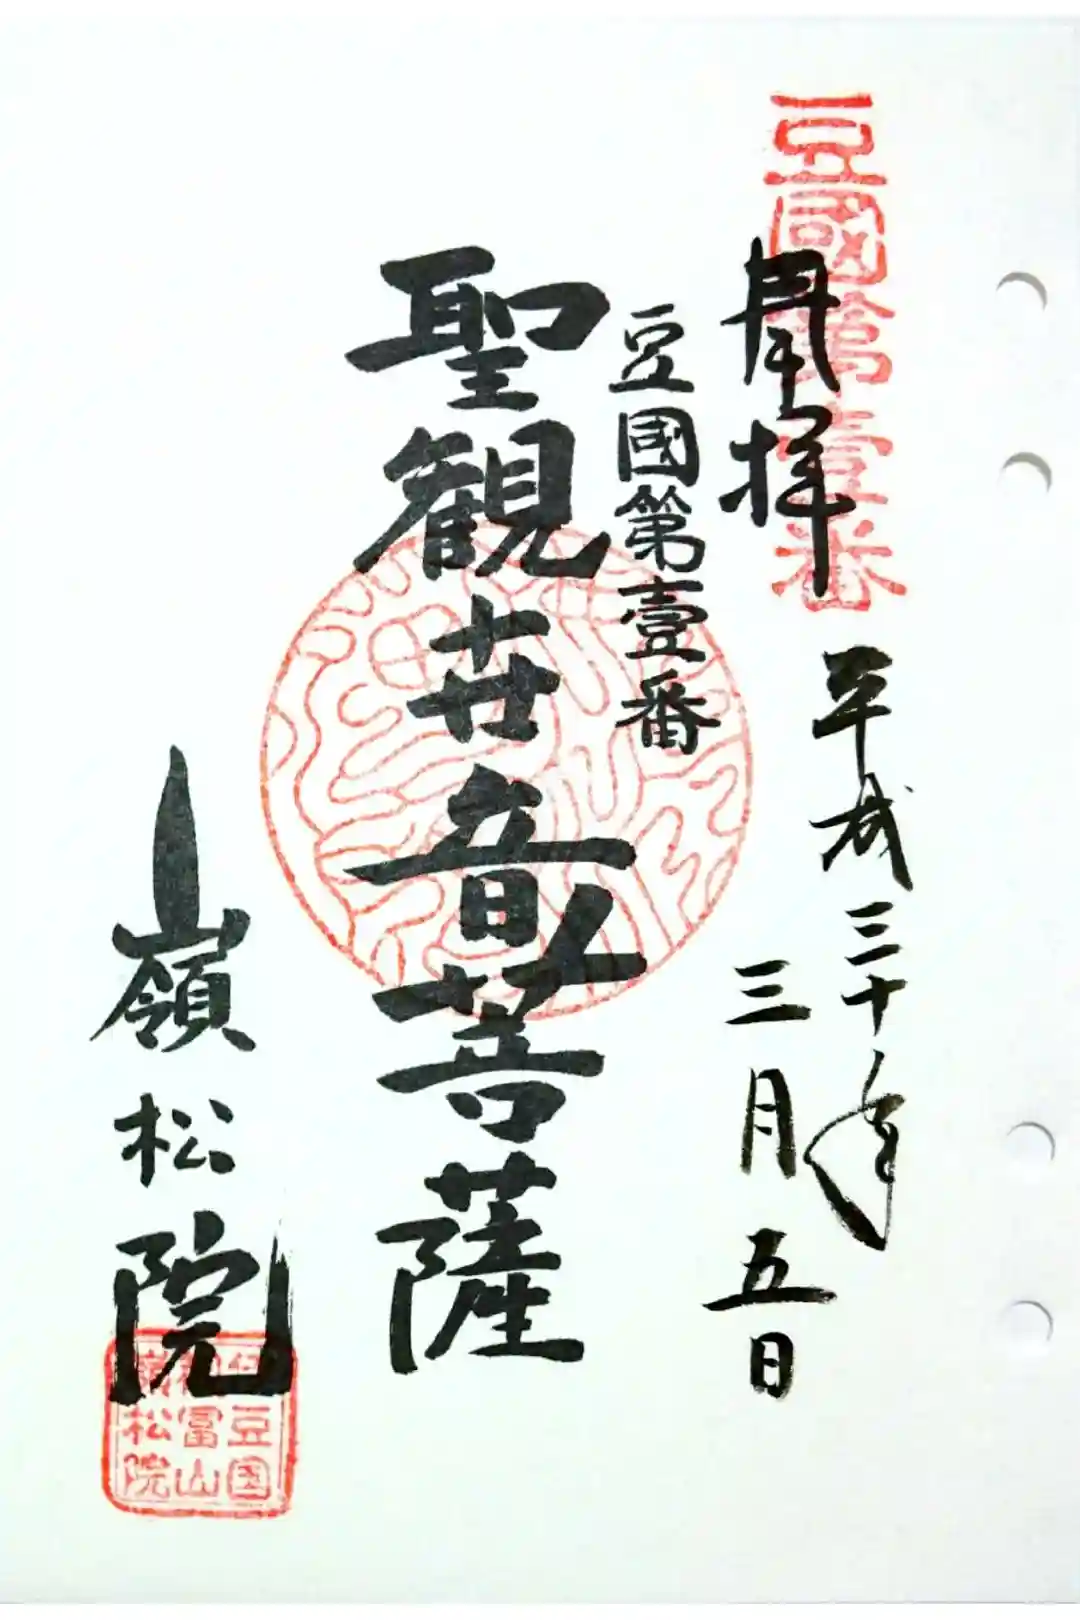 豆國第壹番
拝
平成三十年
三月五日
豆國第壹番
聖観世音菩薩
嶺松院
伊豆国
富山
嶺松院